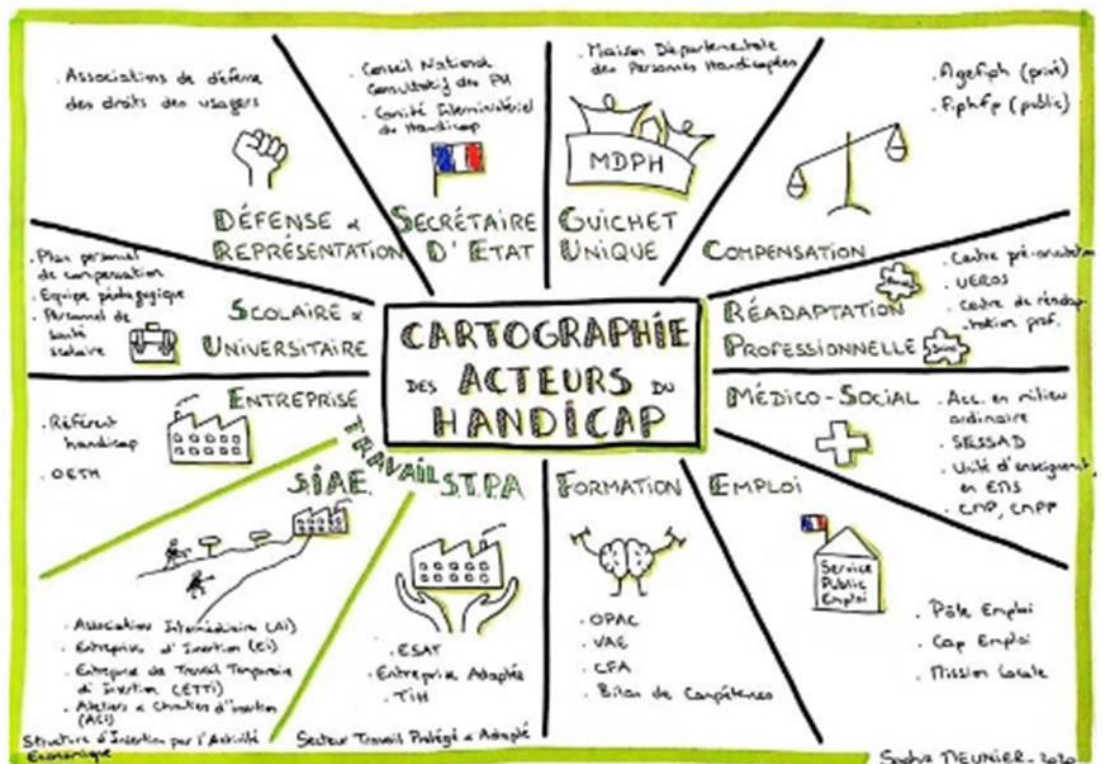 CARTOGRAPHIE
DES ACTEURS DU
HANDICAP
. Associations de défense
des droits des usagers
DÉFENSE &
REPRÉSENTATION
. Conseil National
Consultatif des PH
. Comité Interministériel
du Handicap
SECRÉTAIRE
D'ETAT
. Maison Départementale
des Personnes Handicapées
MDPH
GUICHET
UNIQUE
. Agefiph (privé)
. Fiphfp (public)
COMPENSATION
. Centre pré-orientation
. UEROS
. Centre de réadap
-tation prof.
RÉADAPTATION
PROFESSIONNELLE
MÉDICO-SOCIAL
. Acc. en milieu
ordinaire
. SESSAD
. Unité d'enseignent
en EMS
. CMP, CMPP
EMPLOI
Service
Public
Emploi
. Pôle Emploi
. Cap Emploi
. Mission Locale
FORMATION
. OPAC
. VAE
. CFA
. Bilan de Compétences
TRAVAIL
S.T.P.A
. ESAT
. Entreprise Adaptée
. TIH
Secteur Travail Protégé & Adapté
SIAE
. Association Intermédiaire (AI)
. Entreprises d'Insertion (Ei)
. Entreprise de Travail Temporaire
d'Insertion (ETTi)
. Ateliers & Chantiers d'insertion
(ACI)
Structure d'Insertion par l'Activité
Economique
ENTREPRISE
. Référent
handicap
. OETH
. Plan personnel
de compensation
. Equipe pédagogique
. Personnel de
santé
scolaire
SCOLAIRE &
UNIVERSITAIRE
MEUNIER - 2020